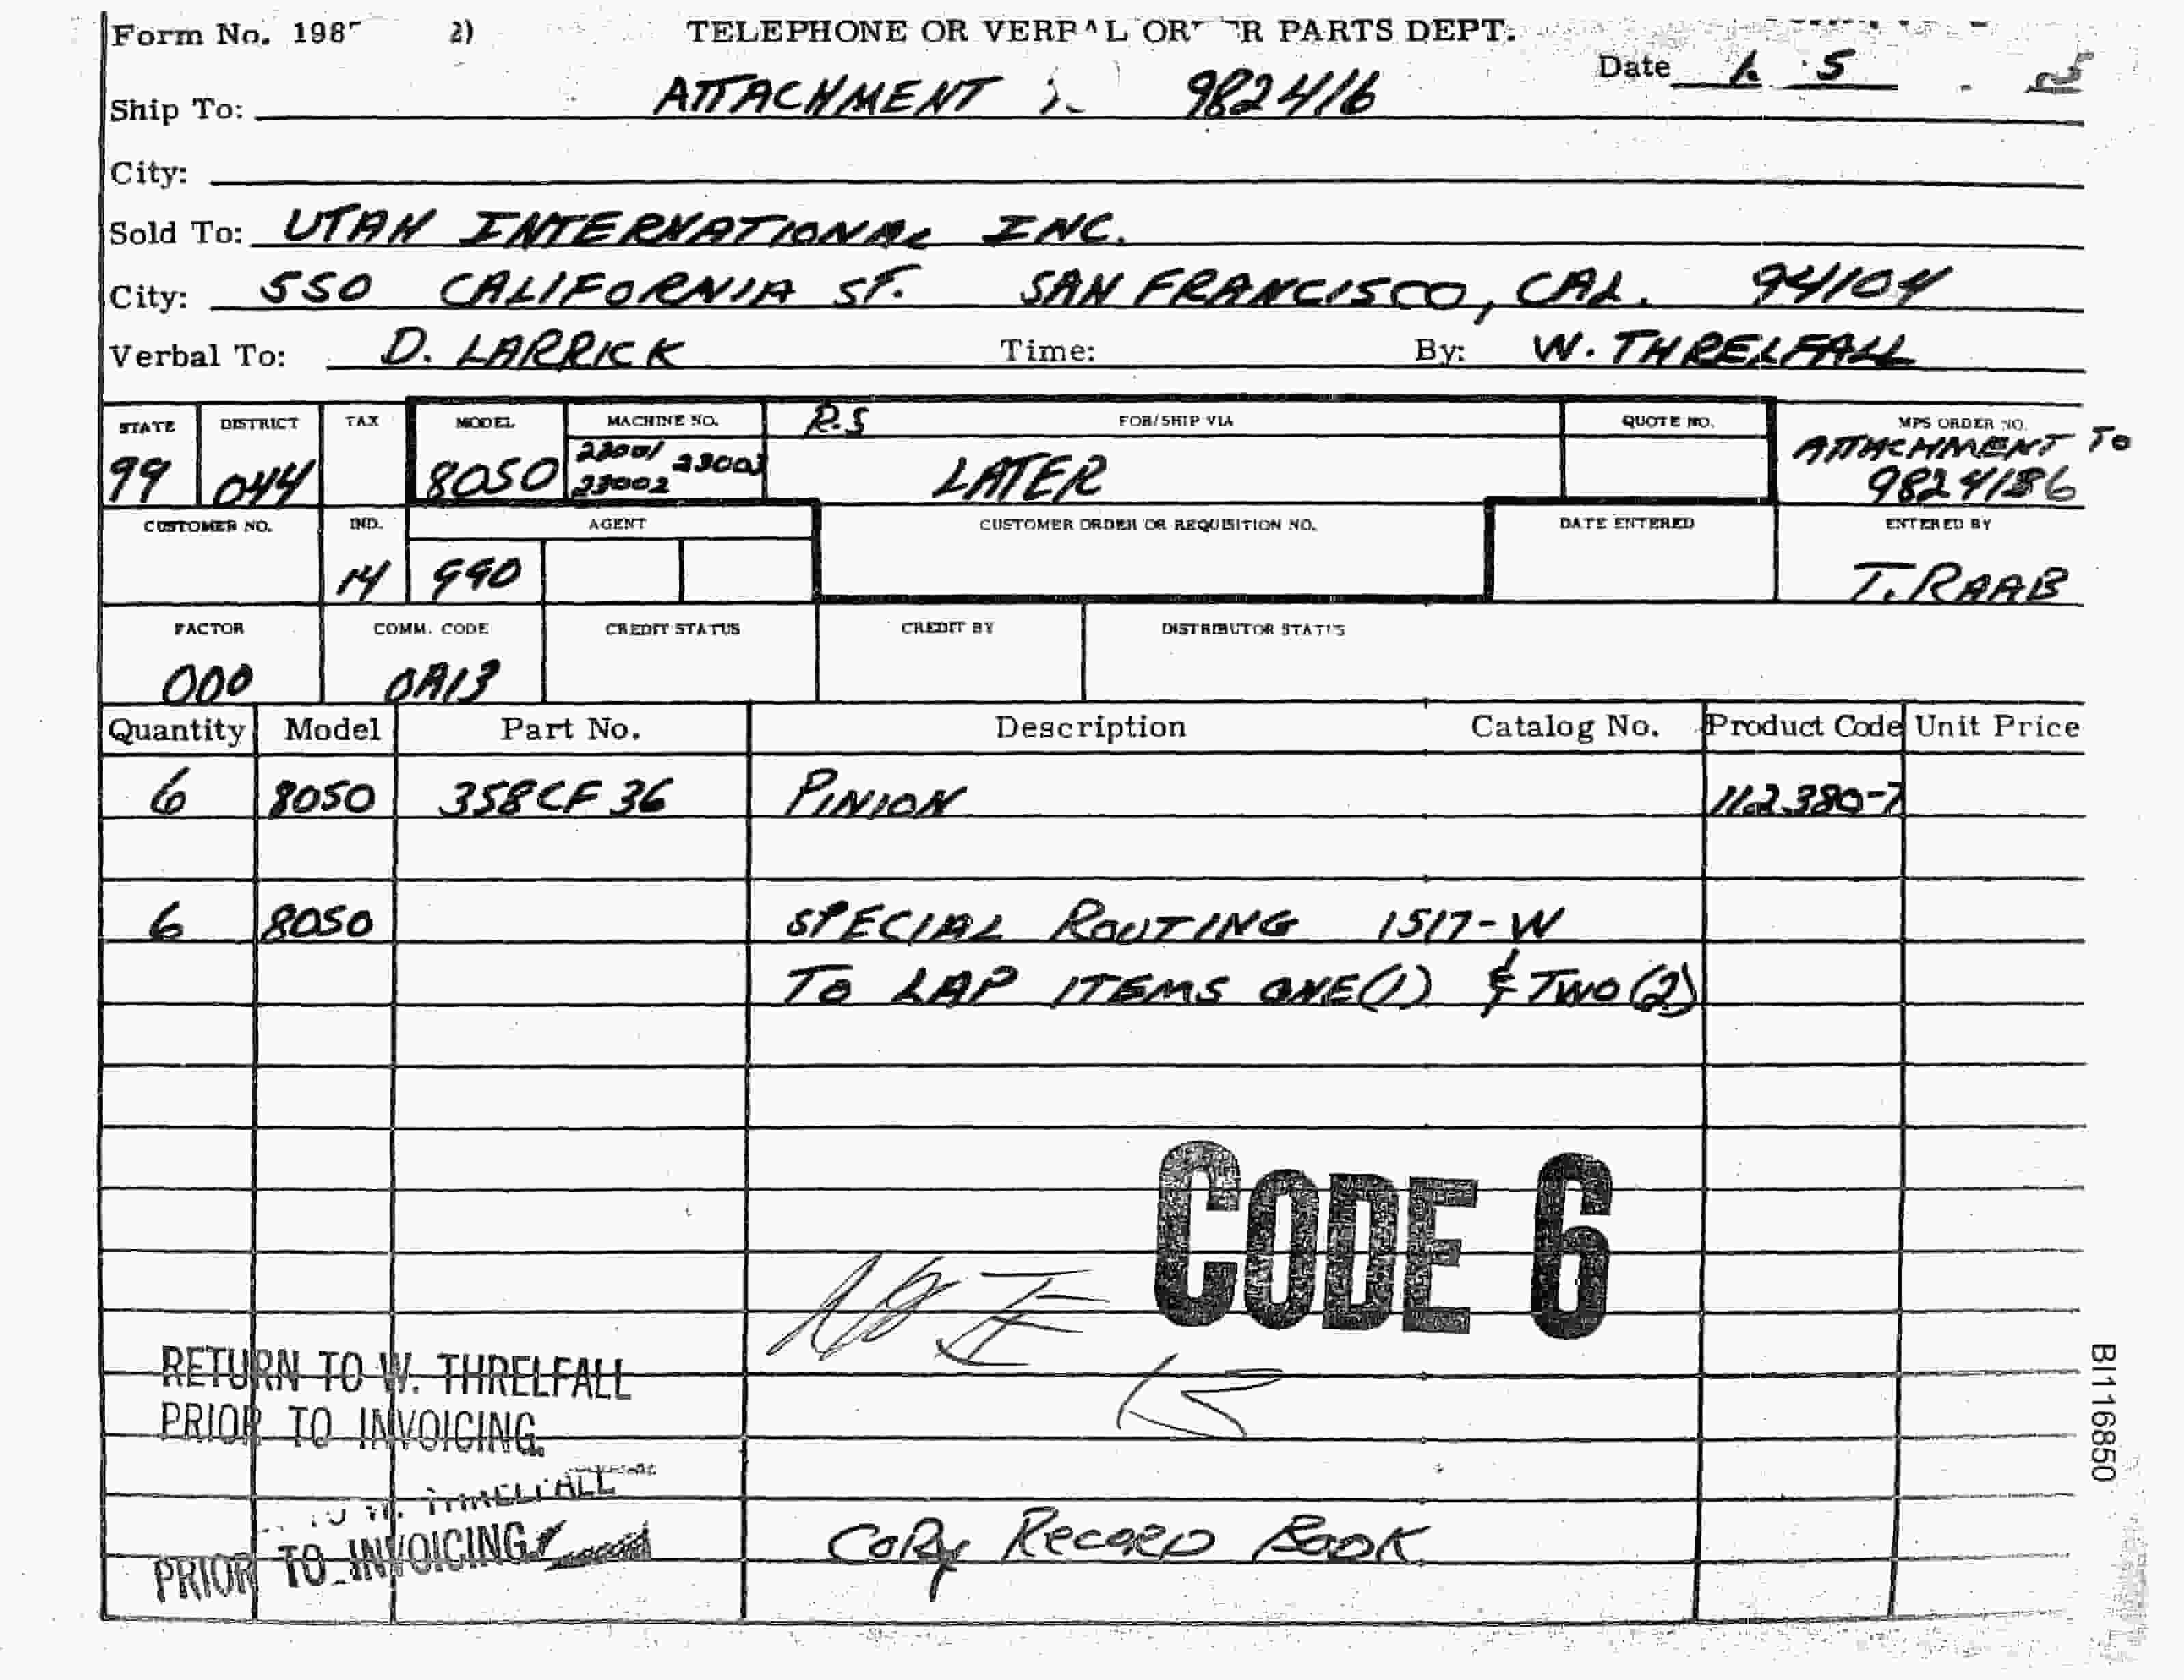 Form No. 198 2)
TELEPHONE OR VERBAL ORDER PARTS DEPT.
Date 5
Ship To: ATTACHMENT 982416
City:
Sold To: UTAH INTERNATIONAL INC.
City: 550 CALIFORNIA ST. SAN FRANCISCO, CAL. 94104
Verbal To: D. LARRICK Time: By: W. THRELFALL
STATE DISTRICT TAX MODEL MACHINE NO. R.S FOB/SHIP VIA QUOTE NO. MPS ORDER NO.
99 044 8050 23001 23002 23003 LATER ATTACHMENT TO
CUSTOMER NO. IND. AGENT CUSTOMER ORDER OR REQUISITION NO. DATE ENTERED ENTERED BY
14 990 T. RAAB
FACTOR COMM. CODE CREDIT STATUS CREDIT BY DISTRIBUTOR STATUS
000 0A13
Quantity Model Part No. Description Catalog No. Product Code Unit Price
6 8050 358CF36 PINION 112380-7
6 8050 SPECIAL ROUTING 1517-W
TO LAP ITEMS ONE(1) & TWO(2)
CODE 6
RETURN TO W. THRELFALL
PRIOR TO INVOICING.
TO W. THRELFALL
PRIOR TO INVOICING
COPY RECORD BOOK
BI116850